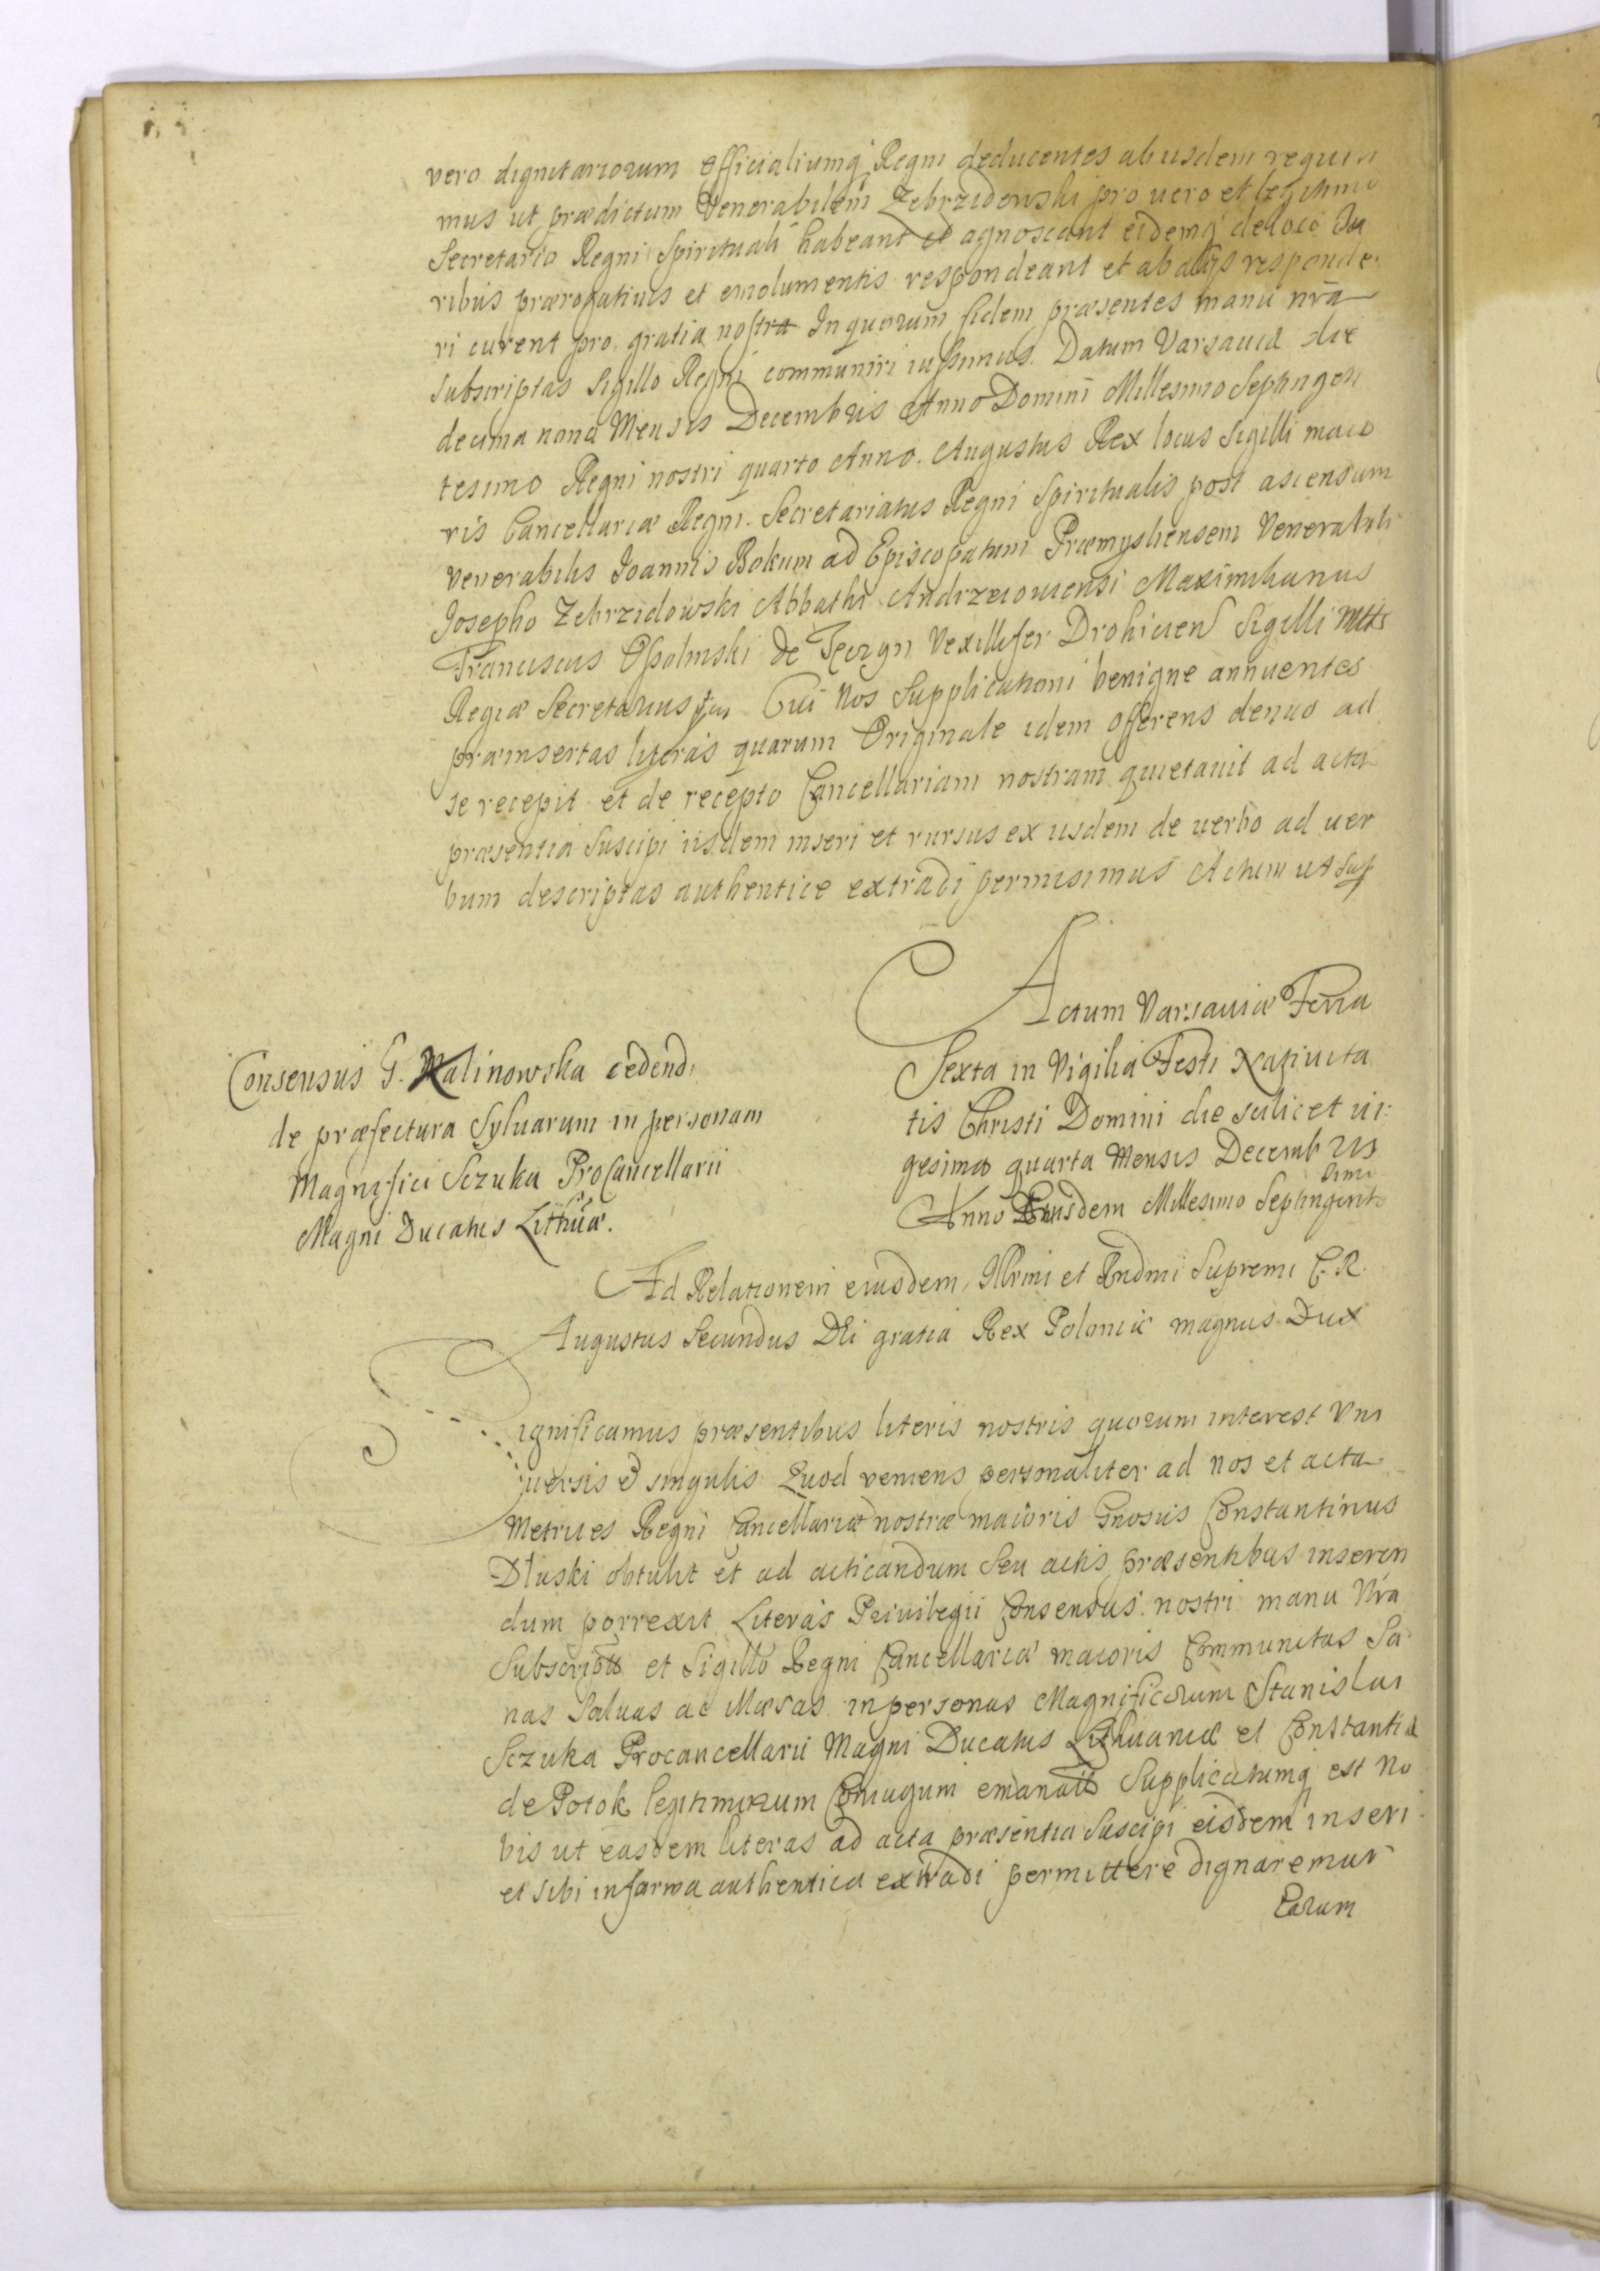 vero dignitariorum officialiumq Regni deducentes ab iisdem requiri
mus ut prædictum Venerabilem Zebrzidowski pro vero et legitimo
Secretario Regni Spirituali habeant et agnoscant eidemq de loco Iu
ribus prærogativis et emolumentis respondeant et ab alijs responde
ri curent pro gratia nostra In quorum fidem præsentes manu nrã
subscriptas Sigillo Regni communiri iussimus. Datum Varsaviæ die
decima nona Mensis Decembris Anno Domini Millesimo Septingen
tesimo Regni nostri quarto Anno. Augustus Rex locus Sigilli maio
ris Cancellariæ Regni. Secretariatus Regni Spiritualis post ascensum
Venerabilis Joannis Bokum ad Episcopatum Præmysliensem Venerabili
Josepho Zebrzidowski Abbathi Andrzeioviensi Maximilianus
Franciscus Ossolinski de Tęczyn Vexillifer Drohicien Sigilli Mttis
Regiæ Secretarius Cui Nos Supplicationi benigne annuentes
præinsertas literas quarum Originale idem offerens denuo ad
se recepit et de recepto Cancellariam nostram quietavit ad acta
præsentia Suscipi iisdem inseri et rursus ex iisdem de verbo ad ver
bum descriptas authentice extradi permisimus Actum ut Sup
Actum Varsaviæ Feria
Sexta in Vigilia Festi Nativita
tis Christi Domini die scilicet vi:
gesima quarta Mensis Decembris
Anno Eiusdem Millesimo Septingente
simo
Consensus G. Malinowska cedend:
de præfectura Sylvarum in personam
Magnifici Sczuka ProCancellarii
Magni Ducatus Lithuæ.
Ad Relationem eiusdem Illrmi et Rndmi Supremi C. R.
Augustus Secundus Dei gratia Rex Poloniæ magnus Dux
Significamus præsentibus literis nostris quorum interest Uni
versis et singulis Quod veniens personaliter ad nos et acta
Metrices Regni Cancellariæ nostræ maioris Gnosus Constantinus
Dluski obtulit et ad acticandum Seu actis præsentibus inseren
dum porrexit Literas Privilegii Consensus nostri manu Nrã
Subscriptas et Sigillo Regni Cancellariæ maioris Communitas Sa
nas Salvas ac illæsas in personas Magnificorum Stanislai
Sczuka Procancellarii Magni Ducatus Lithuaniæ et Constantiæ
de Potok legitimorum Coniugum emanatas Supplicatumq est No
bis ut easdem literas ad acta præsentia Suscipi eisdem inseri
et sibi in forma authentica extradi permittere dignaremur
Earum